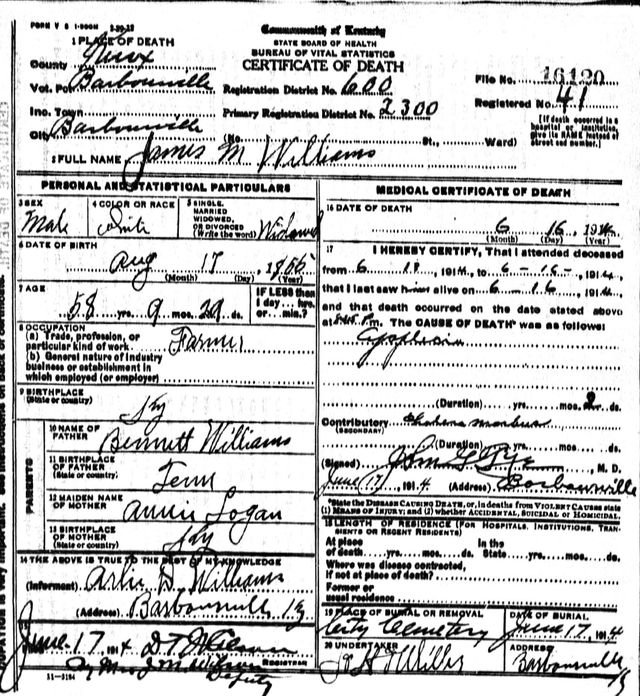 FORM V S 1-500M 3-20-12
Commonwealth of Kentucky
STATE BOARD OF HEALTH
BUREAU OF VITAL STATISTICS
CERTIFICATE OF DEATH
1 PLACE OF DEATH
County Knox
Vot. Pct Barbourville
Registration District No. 600
File No. 16120
Inc. Town
Primary Registration District No. 2300
Registered No. 41
City Barbourville (No. St., Ward)
[If death occurred in a hospital or institution, give its NAME instead of street and number.]
2 FULL NAME James M. Williams
PERSONAL AND STATISTICAL PARTICULARS
3 SEX Male
4 COLOR OR RACE White
5 SINGLE, MARRIED WIDOWED, OR DIVORCED (Write the word) Widowed
6 DATE OF BIRTH
Aug 17, 1855
(Month) (Day) (Year)
7 AGE
58 yrs. 9 mos. 29 ds.
IF LESS than 1 day... hrs. or... min.?
8 OCCUPATION
(a) Trade, profession, or particular kind of work Farmer
(b) General nature of industry business or establishment in which employed (or employer)
9 BIRTHPLACE (State or country) Ky
PARENTS
10 NAME OF FATHER Bennett Williams
11 BIRTHPLACE OF FATHER (State or country) Tenn
12 MAIDEN NAME OF MOTHER Annie Logan
13 BIRTHPLACE OF MOTHER (State or country) Ky
14 THE ABOVE IS TRUE TO THE BEST OF MY KNOWLEDGE
(Informant) Williams
(Address) Barbourville Ky
15 June 17 1914 REGISTRAR
Deputy
11-3184
MEDICAL CERTIFICATE OF DEATH
16 DATE OF DEATH
6 16, 1914
(Month) (Day) (Year)
17 I HEREBY CERTIFY, That I attended deceased
from 6 1914, to 6-16-, 1914
that I last saw him alive on 6-16, 1914
and that death occurred on the date stated above
at P.m. The CAUSE OF DEATH* was as follows:
(Duration) yrs. mos. 2 ds.
Contributory morbus
(SECONDARY)
(Duration) yrs. mos. ds.
(Signed) M. D.
June 17, 1914 (Address) Barbourville
*State the DISEASE CAUSING DEATH, or, in deaths from VIOLENT CAUSES state (1) MEANS OF INJURY; and (2) whether ACCIDENTAL, SUICIDAL or HOMICIDAL.
18 LENGTH OF RESIDENCE (FOR HOSPITALS, INSTITUTIONS, TRANSIENTS OR RECENT RESIDENTS)
At place of death yrs. mos. ds. In the State yrs. mos. ds.
Where was disease contracted, if not at place of death?
Former or usual residence
19 PLACE OF BURIAL OR REMOVAL City Cemetery
DATE OF BURIAL June 17, 1914
20 UNDERTAKER
ADDRESS Barbourville Ky